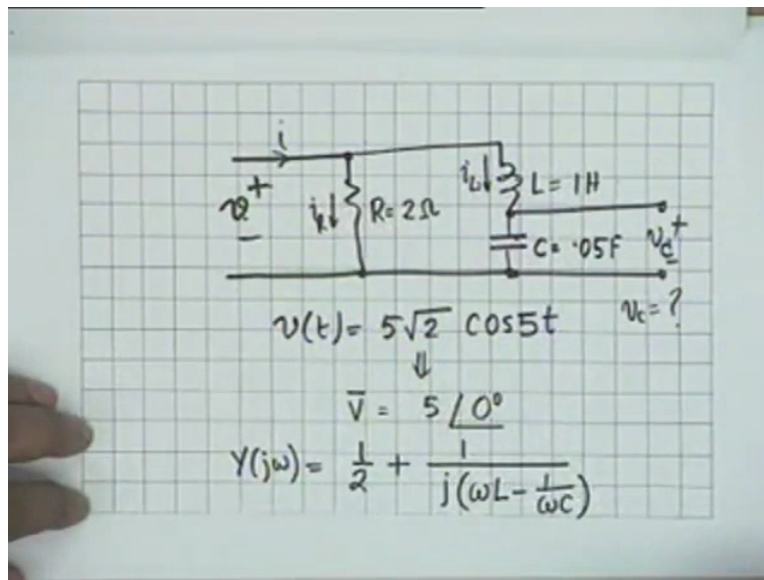 i
v + −
i_R ↓ R = 2Ω
i_L ↓ L = 1H
C = .05F
v_c + −
v_c = ?
v(t) = 5√2 cos5t
⇓
V̄ = 5 ∠0°
Y(jω) = 1/2 + 1/(j(ωL − 1/(ωC)))